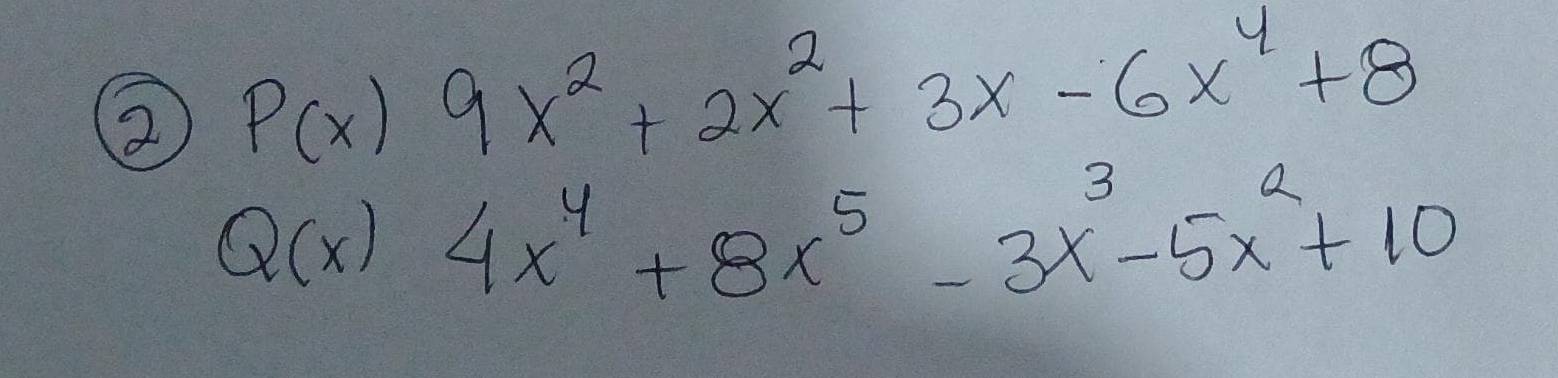 ② P(x) 9x² + 2x² + 3x - 6x⁴ + 8
Q(x) 4x⁴ + 8x⁵ - 3x³ - 5x² + 10